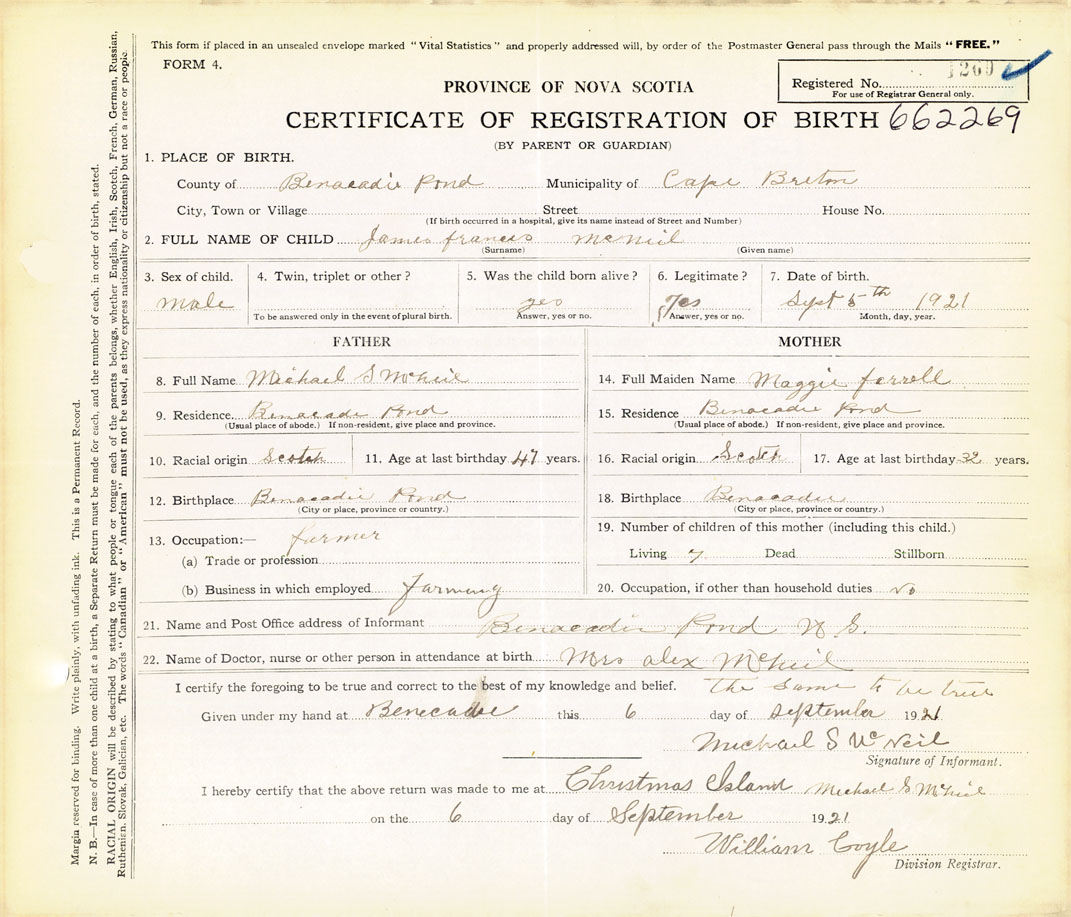 This form if placed in an unsealed envelope marked "Vital Statistics" and properly addressed will, by order of the Postmaster General pass through the Mails "FREE."
FORM 4.
Registered No. 1269
For use of Registrar General only.
PROVINCE OF NOVA SCOTIA
CERTIFICATE OF REGISTRATION OF BIRTH 662269
(BY PARENT OR GUARDIAN)
1. PLACE OF BIRTH.
County of Benacadie Pond Municipality of Cape Breton
City, Town or Village Street House No.
(If birth occurred in a hospital, give its name instead of Street and Number)
2. FULL NAME OF CHILD James francis McNeil
(Surname) (Given name)
3. Sex of child. 4. Twin, triplet or other? 5. Was the child born alive? 6. Legitimate? 7. Date of birth.
male yes Yes Sept 5th 1921
To be answered only in the event of plural birth. Answer, yes or no. Answer, yes or no. Month, day, year.
FATHER
8. Full Name Michael S McNeil
9. Residence. Benacadie Pond
(Usual place of abode.) If non-resident, give place and province.
10. Racial origin Scotch 11. Age at last birthday 47 years.
12. Birthplace Benacadie Pond
(City or place, province or country.)
13. Occupation:— farmer
(a) Trade or profession
(b) Business in which employed farming
MOTHER
14. Full Maiden Name Maggie ferroll
15. Residence Benacadie Pond
(Usual place of abode.) If non-resident, give place and province.
16. Racial origin Scotch 17. Age at last birthday 32 years.
18. Birthplace Benacadie
(City or place, province or country.)
19. Number of children of this mother (including this child.)
Living 7 Dead Stillborn
20. Occupation, if other than household duties No
21. Name and Post Office address of Informant Benacadie Pond N S.
22. Name of Doctor, nurse or other person in attendance at birth Mrs alex McNeil
I certify the foregoing to be true and correct to the best of my knowledge and belief. The same to be true
Given under my hand at Benecadie this 6 day of September 1921
Michael S McNeil
Signature of Informant.
I hereby certify that the above return was made to me at Christmas Island Michael S McNeil
on the 6 day of September 1921
William Coyle
Division Registrar.
Margia reserved for binding. Write plainly, with unfading ink. This is a Permanent Record.
N. B.—In case of more than one child at a birth, a Separate Return must be made for each, and the number of each, in order of birth, stated.
RACIAL ORIGIN will be described by stating to what people or tongue each of the parents belongs, whether English, Irish, Scotch, French, German, Russian,
Ruthenian, Slovak, Galician, etc. The words "Canadian" or "American" must not be used, as they express nationality or citizenship but not a race or people.